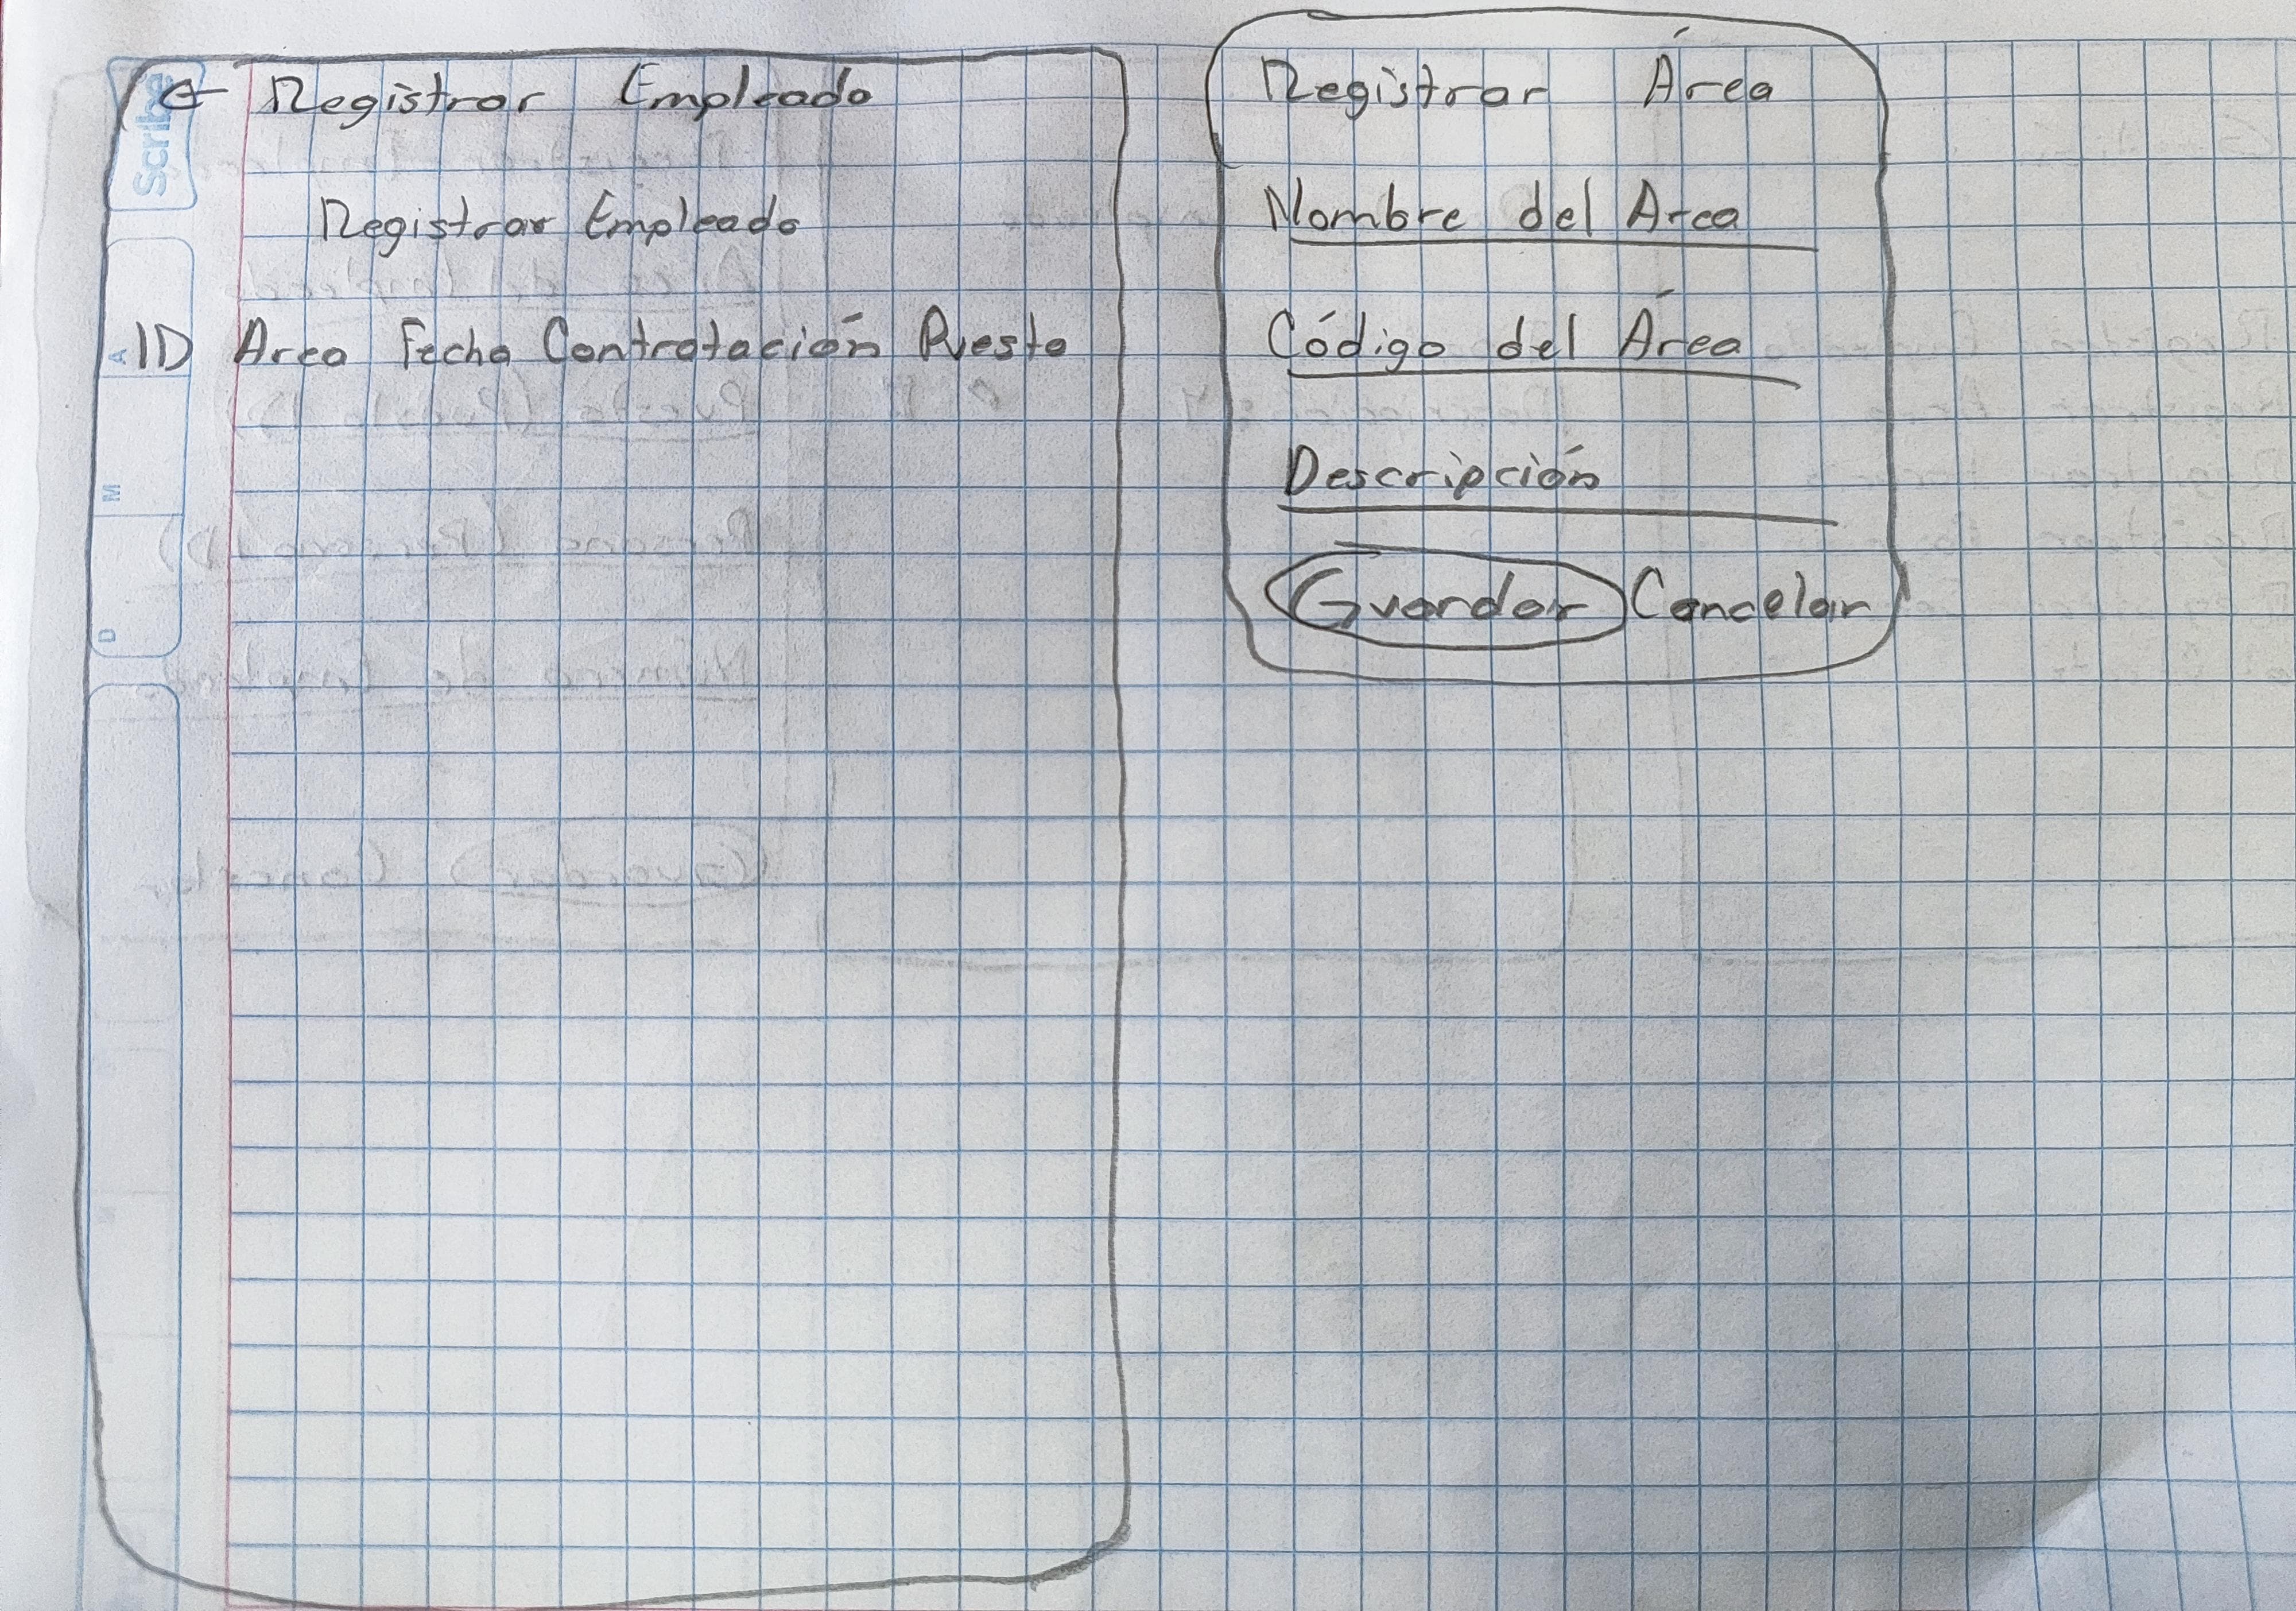 ← Registrar Empleado
Registrar Empleado
ID Area Fecha Contratación Puesto
Registrar Área
Nombre del Area
Código del Área
Descripción
Guardar Cancelar
Scribe
A
M
D